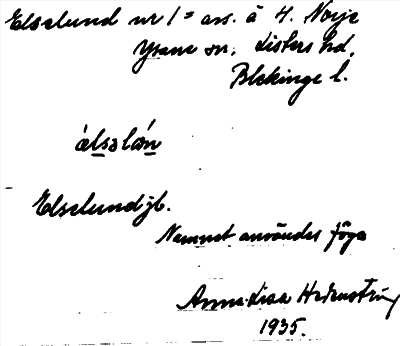 Elselund nr 1 = avs. å 4. Norje
Ysane sn. Listers hd.
Blekinge l.
álsəlán
Elselund jb.
Namnet användes föga
Anna-Lisa Hedenström
1935.